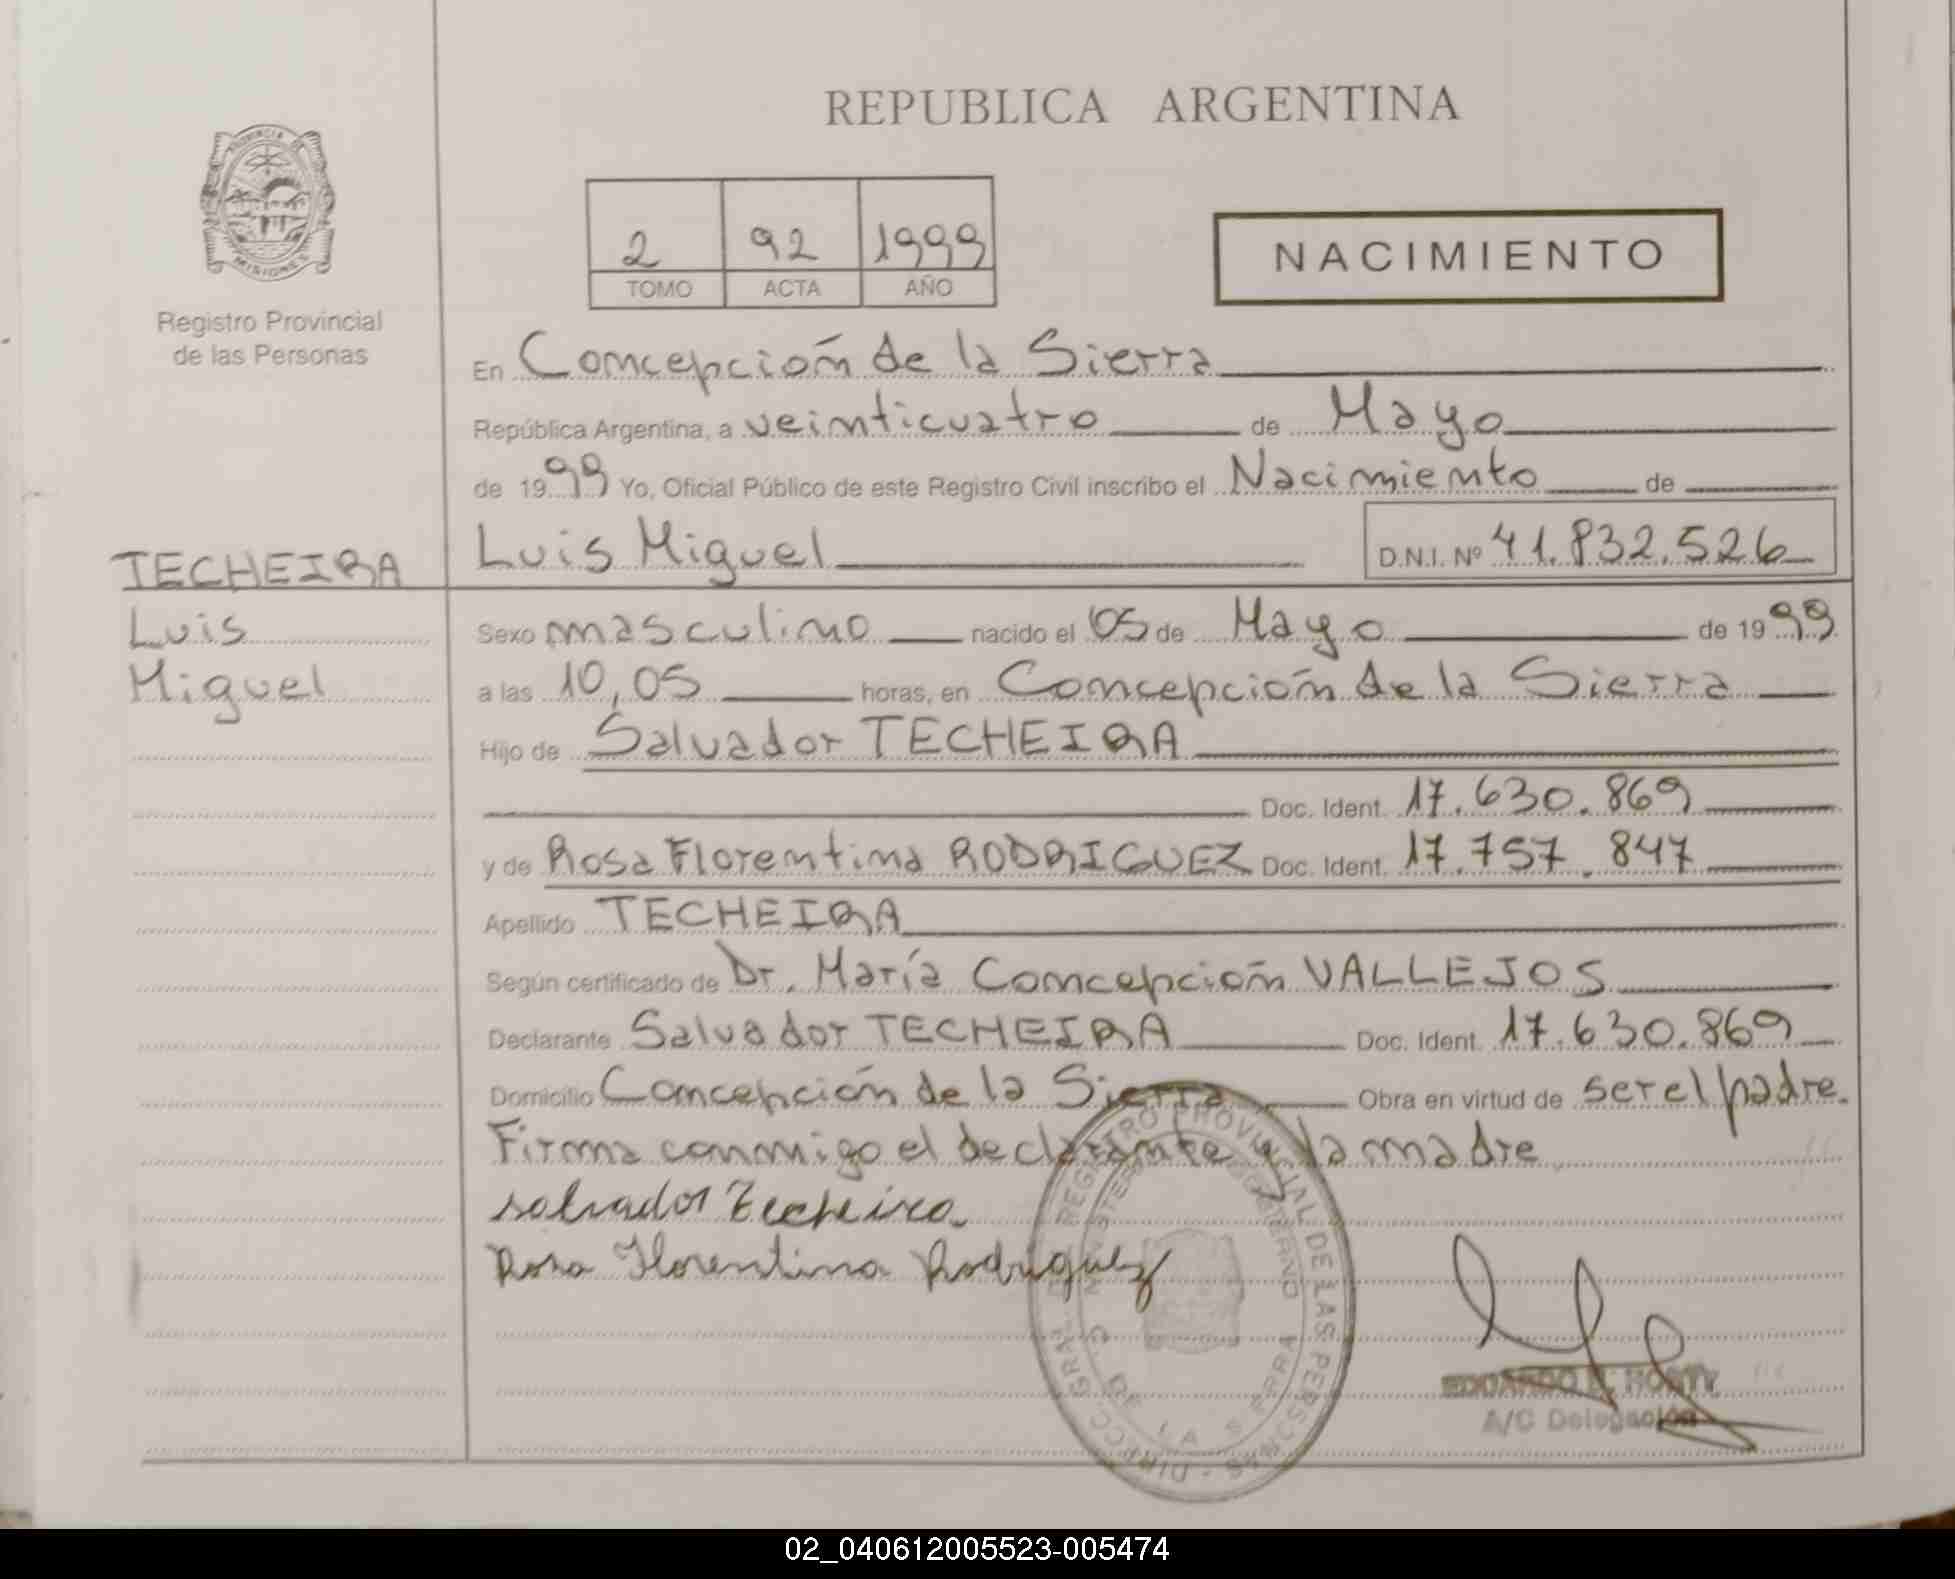 REPUBLICA ARGENTINA
PROVINCIA
MISIONES
Registro Provincial
de las Personas
2 92 1999
TOMO ACTA AÑO
NACIMIENTO
En Concepción de la Sierra
República Argentina, a veinticuatro de Mayo
de 1999 Yo, Oficial Público de este Registro Civil inscribo el Nacimiento de
Luis Miguel D.N.I. Nº 41.832.526
TECHEIRA
Luis
Miguel
Sexo masculino nacido el 05 de Mayo de 1999
a las 10,05 horas, en Concepción de la Sierra
Hijo de Salvador TECHEIRA
Doc. Ident. 17.630.869
y de Rosa Florentina RODRIGUEZ Doc. Ident. 17.757.847
Apellido TECHEIRA
Según certificado de Dr. María Concepción VALLEJOS
Declarante Salvador TECHEIRA Doc. Ident. 17.630.869
Domicilio Concepción de la Sierra Obra en virtud de ser el padre.
Firma conmigo el declarante y la madre
salvador Techeira
Rosa Florentina Rodriguez
REGISTRO PROVINCIAL DE LAS PERSONAS - DIRECC. GRAL.
C. DE LA SIERRA
A/C Delegación
02_040612005523-005474